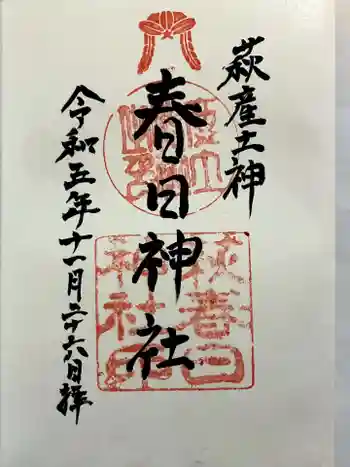 萩産土神
春日神社
萩春日神社印
令和五年十一月二十六日拝